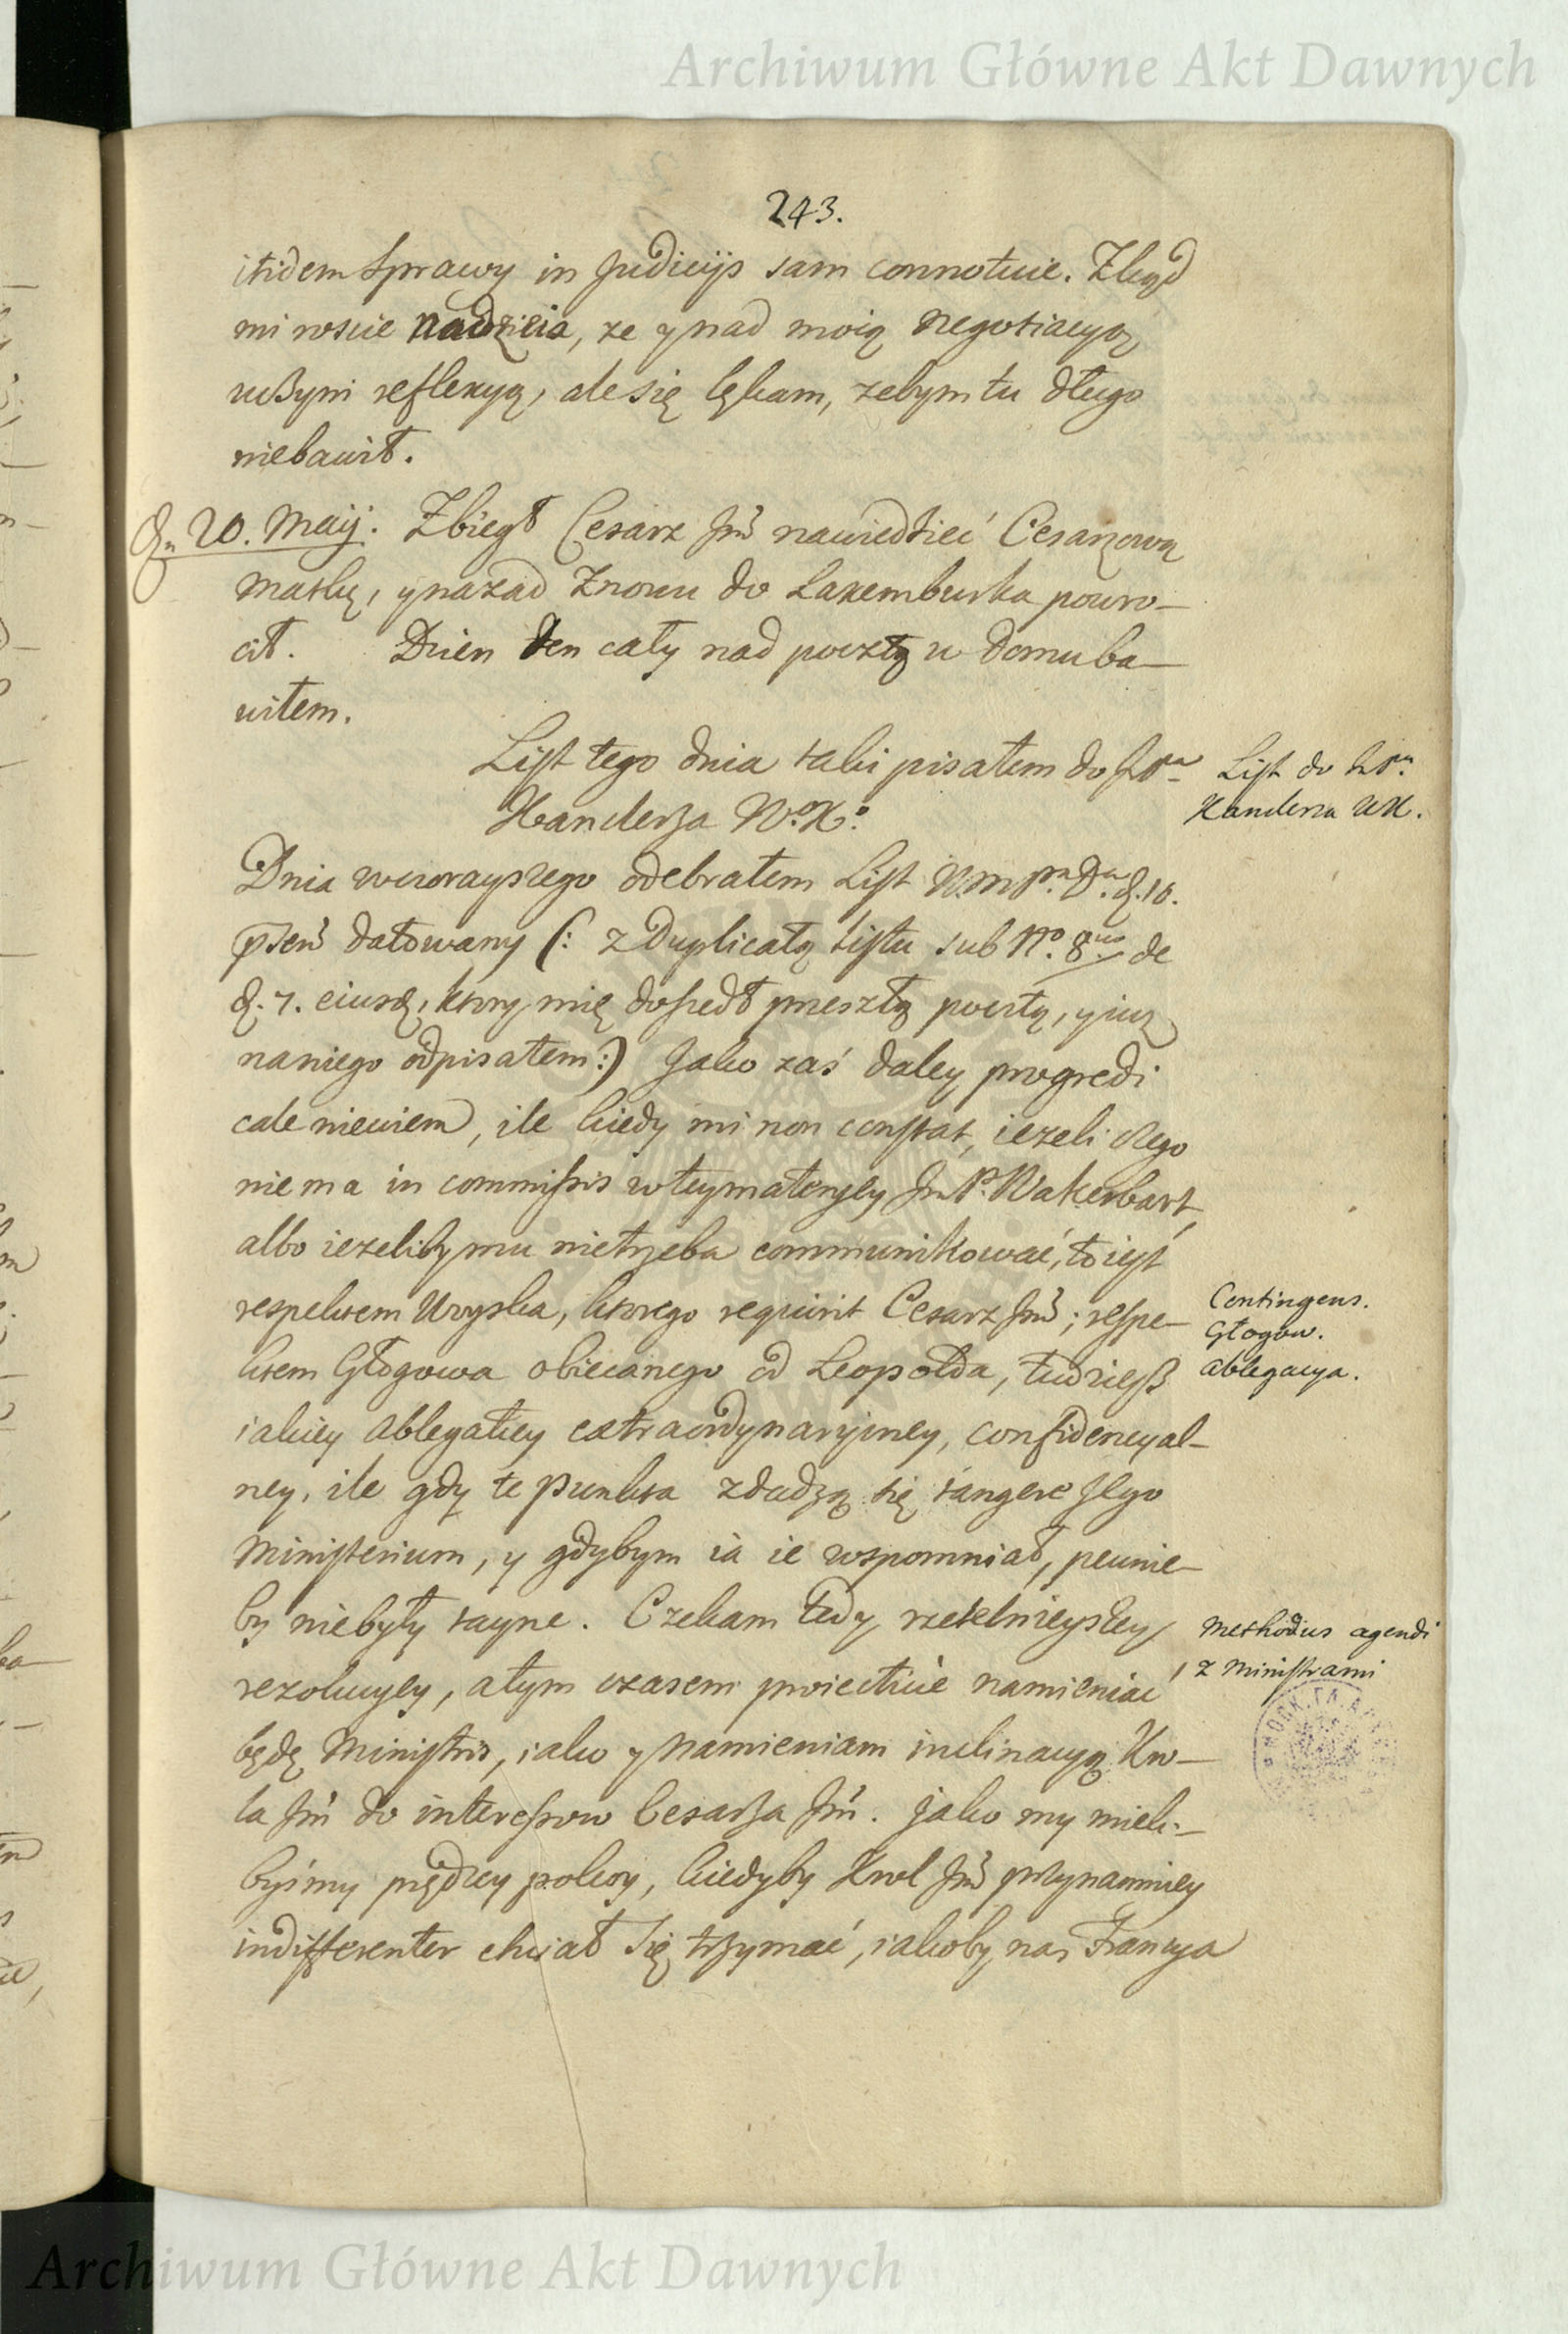 Archiwum Główne Akt Dawnych
243.
itidem Sprawy in Judicijs sam connotuie. Zkąd
mi roscie nadzieia, ze y nad moią negotiacyą
uczyni reflexyą, ale się lękam, zebym tu długo
niebawił.
d. 20. Maij. Zbiegł Cesarz Jmć nawiedzieć Cesarzową
Matkę, y nazad znowu do Laxemburka powro-
cił. Dzien ten cały nad pocztą w domu ba-
wiłem.
List tego dnia taki pisałem do JPa
Kanclerza W.o K.o
List do JPa
Kanclerza WK.
Dnia wczorayszego odebrałem List W.m Pa. Da. d. 10.
pńsen datowany (: z Duplicatą Listu sub No. 8vo de
d. 7. eiusd, ktory mię doszedł przeszłą pocztą, y iuz
naniego odpisałem :) Jako zaś daley progredi
cale niewiem, ile kiedy mi non constat, iezeli czego
nie ma in commissis w tey materyey Jm P. Wakerbart,
albo iezeliby mu nietrzeba communikować, to iest
respektem Woyska, ktorego requirit Cesarz Jmć; respe-
ktem Głogowa obiecanego od Leopolda, tudziesz
iakiey ablegatiey extraordynaryiney, confidencyal-
ney, ile gdy te punkta zdadzą się tangere Jego
Ministerium, y gdybym ia ie wspomniał, pewnie-
by niebyły tayne. Czekam tedy rzetelnieyszey
rezolucyey, a tym czasem proiective namieniać
będę Ministris, iako y namieniam inclinacyą Kro-
la Jmć do interessow Cesarza Jmć. Jako my mieli-
byśmy prędzey pokoy, kiedyby Krol Jmć przynamniey
indifferenter chciał się trzymać, iakoby nas Francya
Contingens.
Głogow.
ablegacya.
Methodus agendi
z Ministrami
Archiwum Główne Akt Dawnych